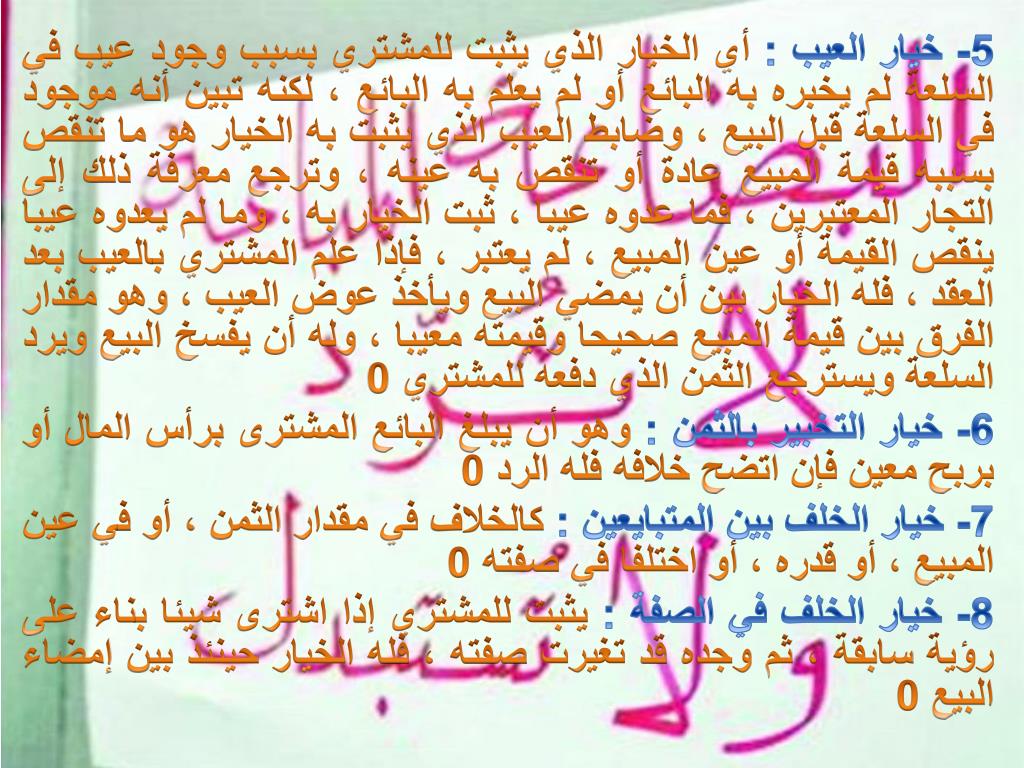 5- خيار العيب : أي الخيار الذي يثبت للمشتري بسبب وجود عيب في
السلعة لم يخبره به البائع أو لم يعلم به البائع ، لكنه تبين أنه موجود
في السلعة قبل البيع ، وضابط العيب الذي يثبت به الخيار هو ما تنقص
بسببه قيمة المبيع عادة أو تنقص به عينه ، وترجع معرفة ذلك إلى
التجار المعتبرين ، فما عدوه عيبا ، ثبت الخيار به ، وما لم يعدوه عيبا
ينقص القيمة أو عين المبيع ، لم يعتبر ، فإذا علم المشتري بالعيب بعد
العقد ، فله الخيار بين أن يمضي البيع ويأخذ عوض العيب ، وهو مقدار
الفرق بين قيمة المبيع صحيحا وقيمته معيبا ، وله أن يفسخ البيع ويرد
السلعة ويسترجع الثمن الذي دفعه للمشتري 0
6- خيار التخبير بالثمن : وهو أن يبلغ البائع المشترى برأس المال أو
بربح معين فإن اتضح خلافه فله الرد 0
7- خيار الخلف بين المتبايعين : كالخلاف في مقدار الثمن ، أو في عين
المبيع ، أو قدره ، أو اختلفا في صفته 0
8- خيار الخلف في الصفة : يثبت للمشتري إذا اشترى شيئا بناء على
رؤية سابقة ، ثم وجده قد تغيرت صفته ، فله الخيار حينئذ بين إمضاء
البيع 0
البضاعة المباعة
لا تُردّ
ولا تستبدل